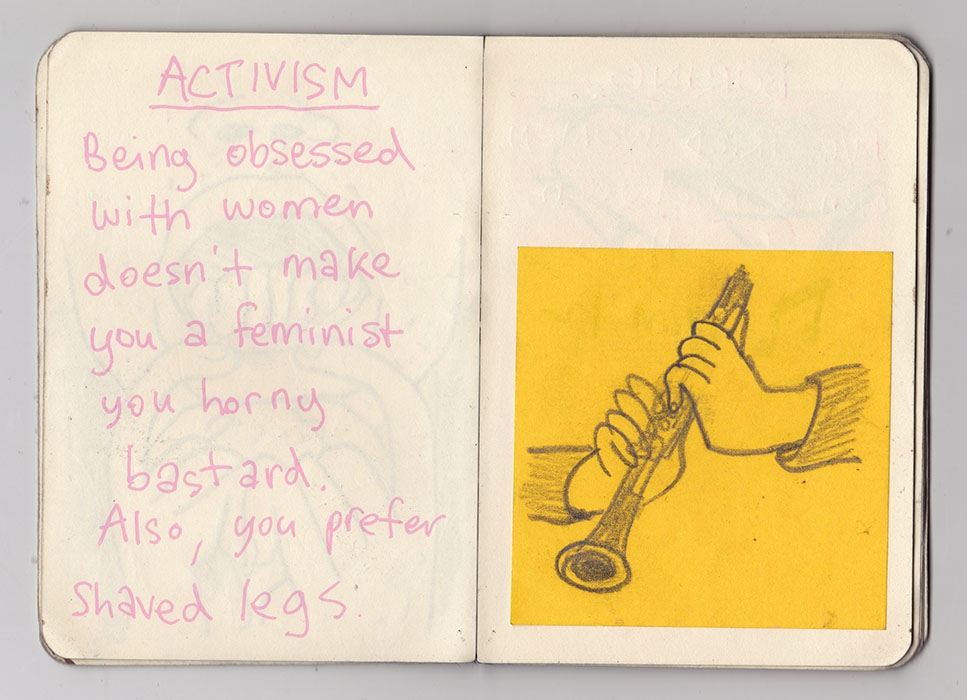 ACTIVISM
Being obsessed
with women
doesn't make
you a feminist
you horny
bastard.
Also, you prefer
shaved legs.